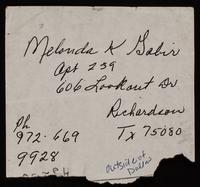 Melonda K Gabir
Apt 239
606 Lookout Dr
Richardson
Tx 75080
Ph
972-669
9928
outside of
Dallas